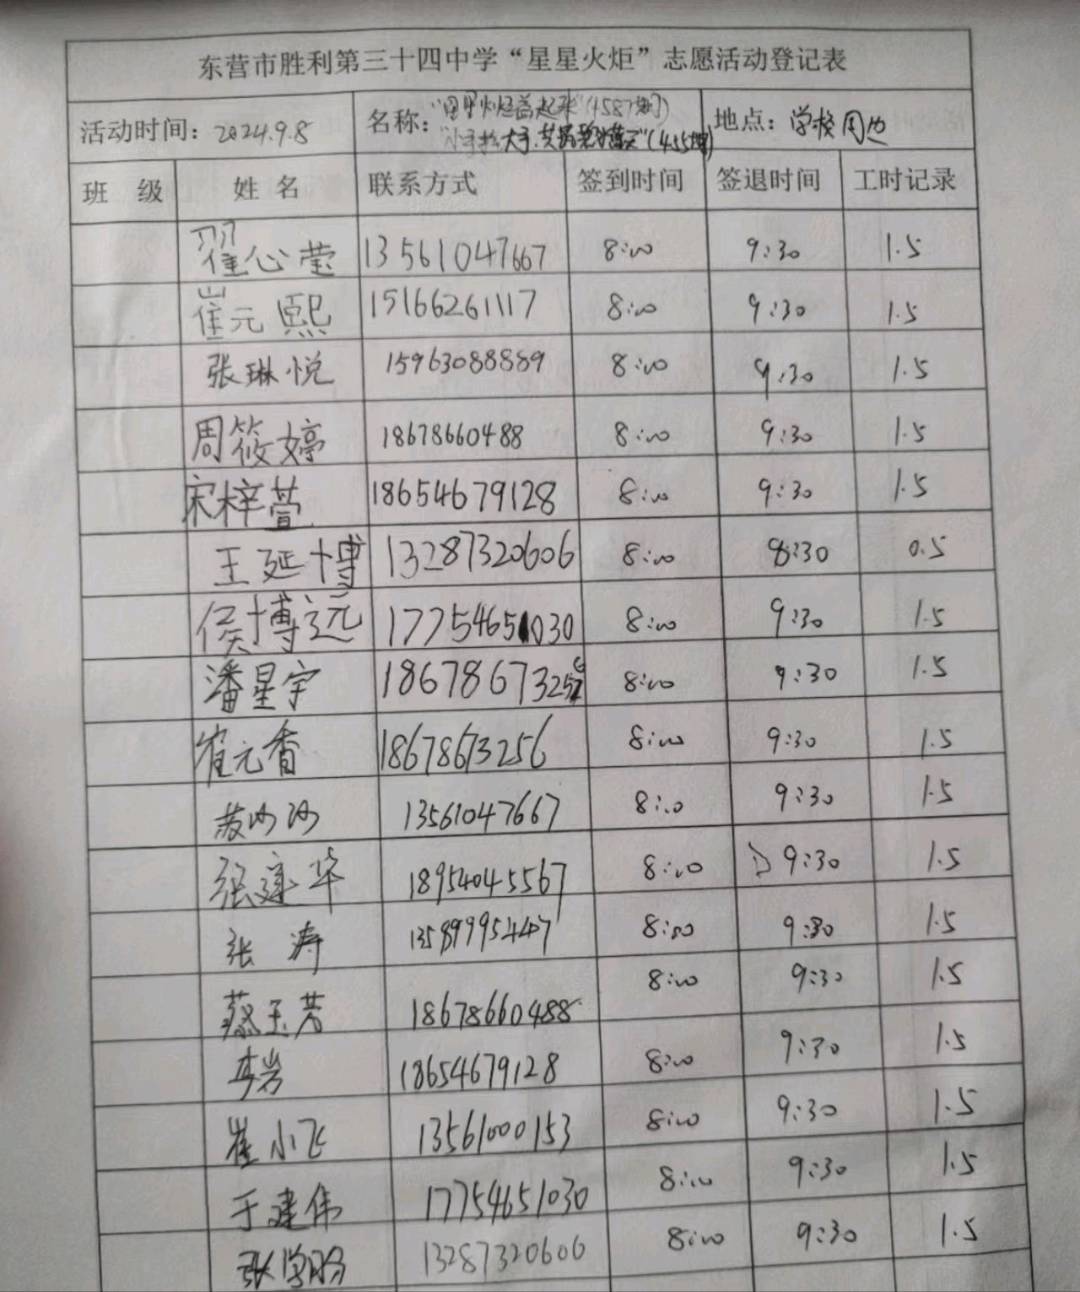 东营市胜利第三十四中学“星星火炬”志愿活动登记表
活动时间：2024.9.8 名称：(4587期) 地点：学校周边
“小手拉大手.共 (455期)
班 级 姓 名 联系方式 签到时间 签退时间 工时记录
翟心莹 13561047667 8:00 9:30 1.5
崔元熙 15166261117 8:00 9:30 1.5
张琳悦 15963088889 8:00 9:30 1.5
周筱婷 18678660488 8:00 9:30 1.5
宋梓萱 18654679128 8:00 9:30 1.5
王延博 13287320606 8:00 8:30 0.5
侯博远 17754651030 8:00 9:30 1.5
潘星宇 18678673256 8:00 9:30 1.5
崔元香 18678673256 8:00 9:30 1.5
13561047667 8:00 9:30 1.5
张建华 18954045567 8:00 9:30 1.5
张 涛 13589995447 8:00 9:30 1.5
蔡玉芳 18678660488 8:00 9:30 1.5
李岩 18654679128 8:00 9:30 1.5
崔小飞 13561000153 8:00 9:30 1.5
于建伟 17754651030 8:00 9:30 1.5
张 13287320606 8:00 9:30 1.5